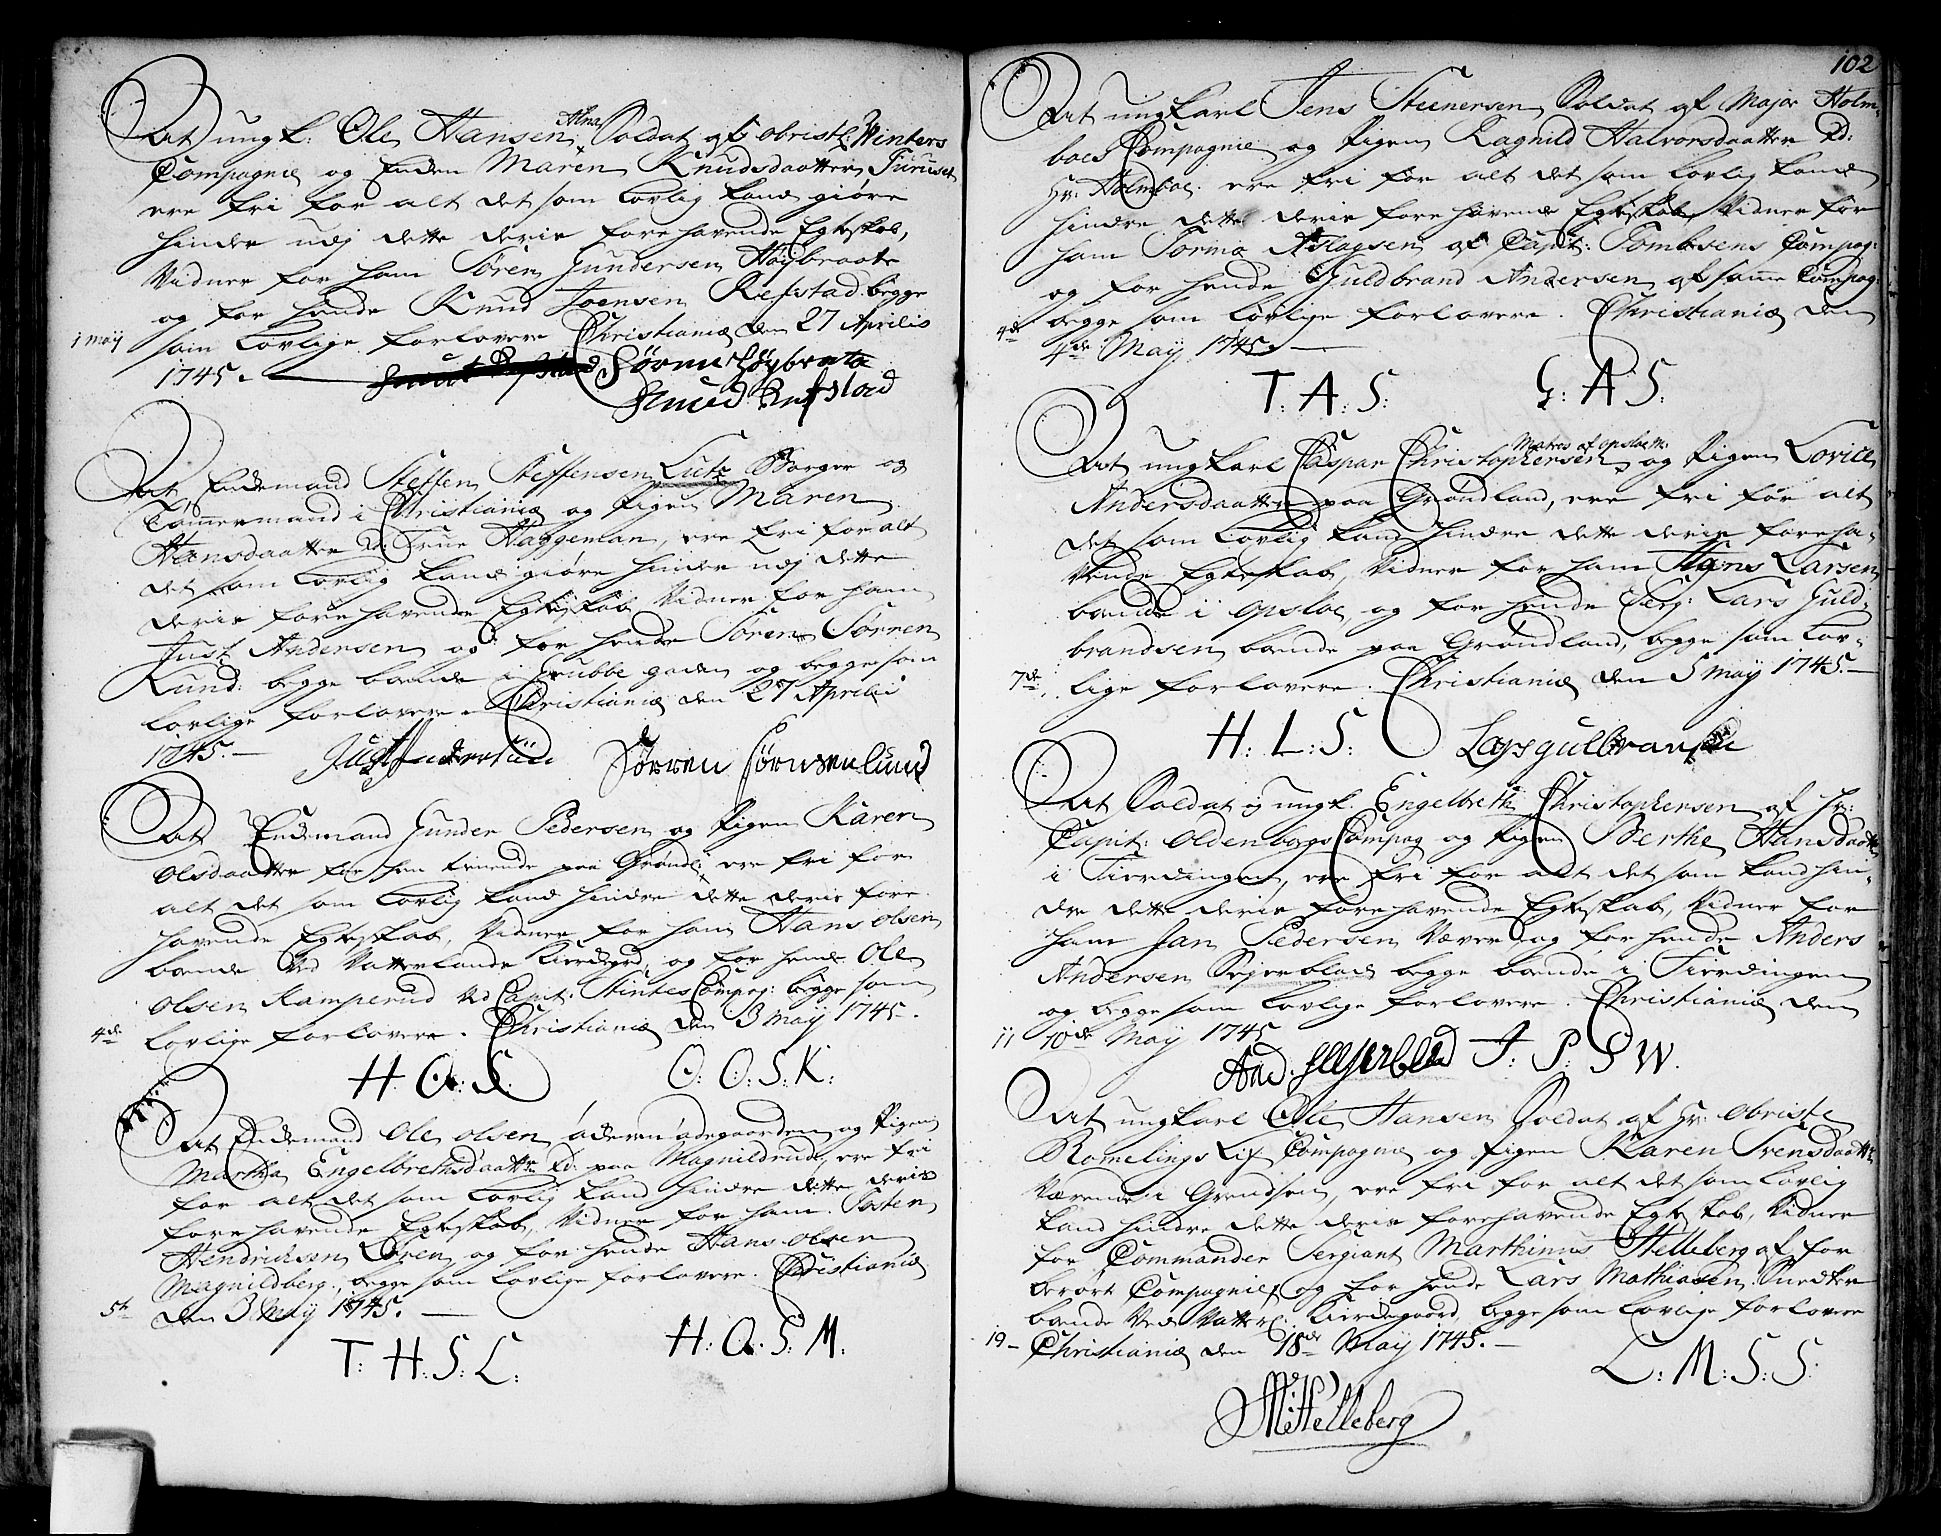 At ungk: Ole Hansen Alna Soldat af Obristl: Winters
Compagnie og Enken Maren Knudsdaatter Furuset
ere fri for alt det som Lovlig kand giøre
hinder udj dette deris forehavende Egteskab,
Vidner for ham Sören Gundersen Høybraate
og for hende Knud Joensen Refstad begge
1 may
som Lovlige forlovere Christiania den 27 Aprilis
1745.
Sørrn Høybrata
Knud Refstad
At Enkemand Steffen Steffensen Lutz Borger og
Tömermand i Christiania og Pigen Maren
Hansdaatter Td: Frue Haggeman, ere fri for alt
det som Lovlig kand giöre hinder udj dette
deris forehavende Egteskab Vidner for ham
Just Andersen og for hende Sören Sörren
Lund: begge boende i Grubbe gaden og begge som
Lovlige forlovere. Christiania den 27 Aprilis
1745.
Just Andersen
Sørren Sørnsen Lund
At Enkemand Gunder Pedersen og Pigen Karen
Olsdaatter for ham tienende paa Grønl: ere fri for
alt det som Lovlig kand hindre dette deris fore
havende Egteskab, Vidner for ham Hans Olsen
boende Ved Vatterlands Kierkegrd, og for hende Ole
Olsen Kamperud Ved Capit: Hintes Compag: begge som
4de
Lovlige forlovere. Christiania den 3 May 1745.
H. O. S.
O: O: S: K:
At Enkemand Ole Olsen Aderen ødegaarden og Pigen
Martha Engelbrethsdaatter Td: paa Magnildrud, ere fri
for alt det som Lovlig kand hindre dette deris
forehavende Egteskab, Vidner for ham Tosten
Hendrichsen Løren og for hende Hans Olsen
Magnildberg, begge som Lovlige forlovere. Christiania
5te
den 3 May 1745.
T: H: S: L:
H: O: S: M:
102
At ungkarl Jens Steenersen Soldat af Major Holm-
boes Compagnie og Pigen Ragnild Halvorsdaatter Td:
Hr: Holmboe. ere fri for alt det som Lovlig kand
hindre dette deris forehavende Egteskab, Vidner for
ham Tormo Aslagsen af Capit: Tombsens Compag:
og for hende Guldbrand Andersen af samme Compag:
begge som Lovlige forlovere. Christiania den
4de
4de May 1745.
T: A: S:
G: A S:
At ungkarl Caspar Christophersen Matros af Opsloe og Pigen Lovice
Andersdaatter paa Grønland, ere fri for alt
det som Lovlig kand hindre dette deris foreha-
vende Egteskab, Vidner for ham Hans Larsen
boende i Opsloe, og for hende Serg: Lars Guld-
brandsen boende paa Grønland, begge som Lov-
7de
lige forlovere. Christiania den 5 May 1745.
H: L: S:
Lars gulbransen
At Soldat og ungk. Engelbreth Christophersen af Hr:
Capit: Oldenborgs Compag og Pigen Berthe Hansdaatter
i Fierdingen, ere fri for alt det som kand hin-
dre dette deris forehavende Egteskab, Vidner for
ham Jan Pedersen Væver og for hende Anders
Andersen Sejerblad begge boende i Fierdingen
og begge som Lovlige forlovere. Christiania den
11
10de May 1745
And: Sejerblad
J: P: S W.
At ungkarl Ole Hansen Soldat af Hr: Obriste
Romelings Lif Compagnie og Pigen Karen Svensdaatter
Værende i Grendsen, ere fri for alt det som Lovlig
kand hindre dette deris forehavende Egteskab, Vidner
for Commander Sergiant Marthinus Helleberg af for
berørt Compagnie, og for hende Lars Mathiasen Snedker
boende Ved Vatterl: Kierkegaard, begge som Lovlige forlovere
19
Christiania den 18de May 1745.
L: M: S: S:
MHelleberg